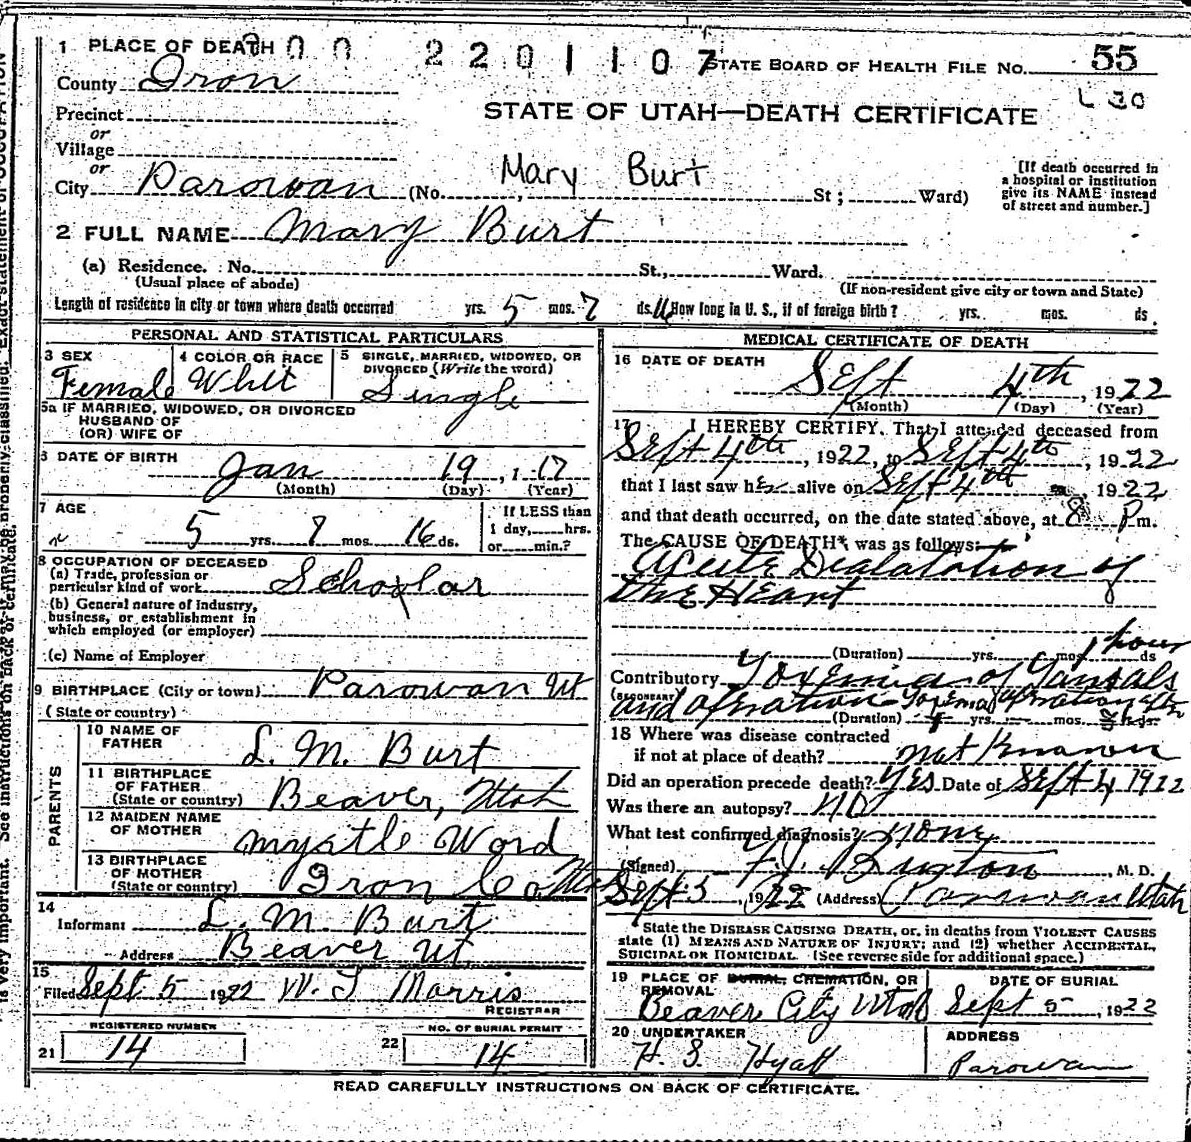 1 PLACE OF DEATH 00 2201107 STATE BOARD OF HEALTH FILE No. 55
County Iron
L 30
STATE OF UTAH—DEATH CERTIFICATE
Precinct
or
Village
or
City Parowan (No. Mary Burt St; Ward)
[If death occurred in a hospital or institution give its NAME instead of street and number.]
2 FULL NAME Mary Burt
(a) Residence. No. St., Ward.
(Usual place of abode) (If non-resident give city or town and State)
Length of residence in city or town where death occurred yrs. 5 mos. 7 ds. 16 How long in U. S., if of foreign birth? yrs. mos. ds.
PERSONAL AND STATISTICAL PARTICULARS
3 SEX Female
4 COLOR OR RACE Whit
5 SINGLE, MARRIED, WIDOWED, OR DIVORCED (Write the word) Single
5a IF MARRIED, WIDOWED, OR DIVORCED
HUSBAND OF
(OR) WIFE OF
6 DATE OF BIRTH
Jan 19, 1 17
(Month) (Day) (Year)
7 AGE
5 yrs. 7 mos. 16 ds.
If LESS than
1 day, hrs.
or min.?
8 OCCUPATION OF DECEASED
(a) Trade, profession or
particular kind of work Scholar
(b) General nature of industry,
business, or establishment in
which employed (or employer)
(c) Name of Employer
9 BIRTHPLACE (City or town) Parowan Ut
(State or country)
PARENTS
10 NAME OF
FATHER L. M. Burt
11 BIRTHPLACE
OF FATHER
(State or country) Beaver, Utah
12 MAIDEN NAME
OF MOTHER Myrtle Word
13 BIRTHPLACE
OF MOTHER
(State or country) Iron Co Utah
14
Informant L. M. Burt
Address Beaver Ut
15
Filed Sept 5 1922 W. T Morris
REGISTRAR
REGISTERED NUMBER
21 14
NO. OF BURIAL PERMIT
22 14
MEDICAL CERTIFICATE OF DEATH
16 DATE OF DEATH
Sept 4th, 1922
(Month) (Day) (Year)
17 I HEREBY CERTIFY, That I attended deceased from
Sept 4th, 1922, to Sept 4th, 1922
that I last saw her alive on Sept 4th 1922
and that death occurred, on the date stated above, at 8 P m.
The CAUSE OF DEATH* was as follows:
Acute Dialatation of
the Heart
(Duration) yrs. mos. 1 hour ds
Contributory Toxemia of Tonsils
(SECONDARY) and operation
(Duration) yrs. mos. ds.
18 Where was disease contracted
if not at place of death? not Known
Did an operation precede death? Yes Date of Sept 4 1922
Was there an autopsy? NO
What test confirmed diagnosis? none
(Signed) M. D.
Sept 5, 1922 (Address) Parowan Utah
State the DISEASE CAUSING DEATH, or, in deaths from VIOLENT CAUSES
state (1) MEANS AND NATURE OF INJURY; and (2) whether ACCIDENTAL,
SUICIDAL OR HOMICIDAL. (See reverse side for additional space.)
19 PLACE OF BURIAL, CREMATION, OR
REMOVAL
Beaver City Utah
DATE OF BURIAL
Sept 5, 1922
20 UNDERTAKER
H. S. Hyatt
ADDRESS
Parowan
READ CAREFULLY INSTRUCTIONS ON BACK OF CERTIFICATE.